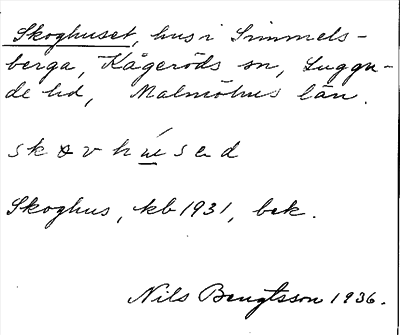 Skoghuset, hus i Simmels-
berga, Kågeröds sn, Luggu-
de hd, Malmöhus län.
Skoghus, kb 1931, bek.
Nils Bengtsson 1936.